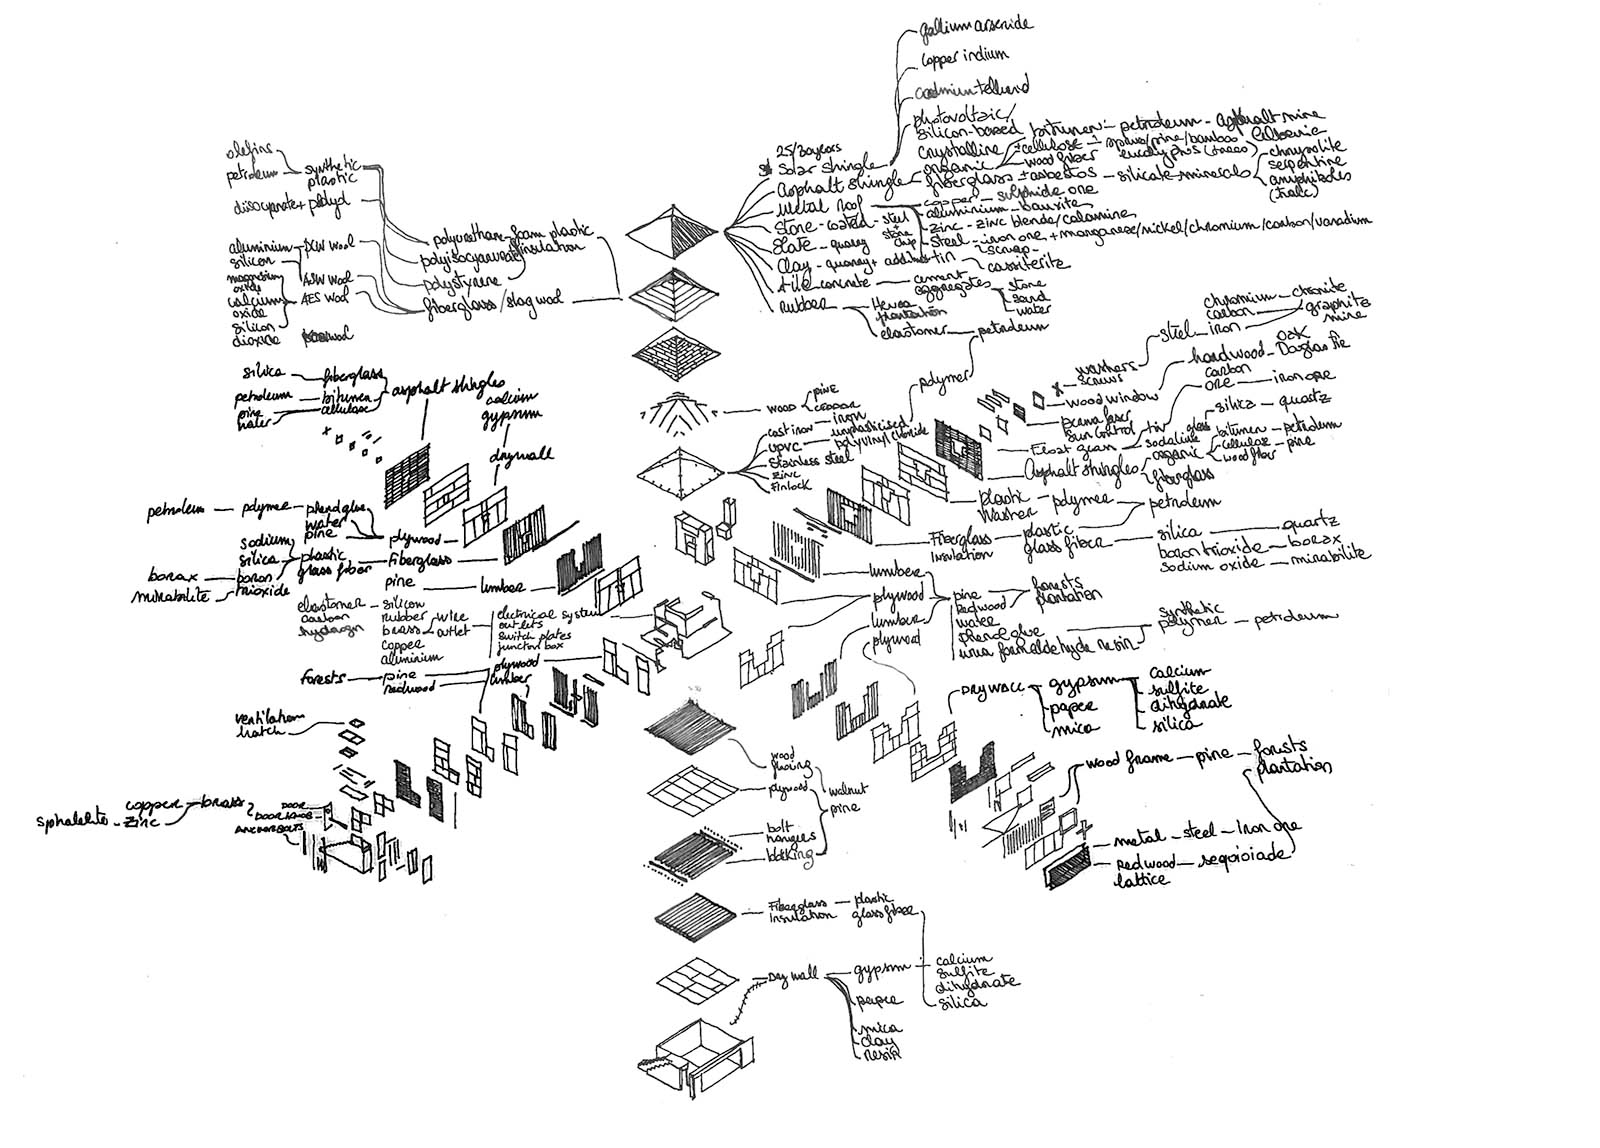 gallium arsenide
copper indium
cadmium telluend
photovoltaic/
silicon-based
crystalline
25/30 years
Solar shingle
bitumen - petroleum - asphalt mine
± cellulose - spruce/pine/bamboo
eucalyptus (trees)
organic
wood fiber
Asphalt shingle
fiberglass ± asbestos - silicate minerals
chrysolite
serpentine
amphiboles
Metal roof
copper - sulphide ore
aluminium - bauxite
zinc - zinc blende/calamine
steel - iron ore + manganese/nickel/chromium/carbon/vanadium
scrap
tin
cassiterite
Stone-coated - steel
+
stone
chip
Slate - quarry
Clay - quarry + additives
tile concrete - cement
aggregates
stone
sand
water
rubber
Hevea
plantation
elastomer - petroleum
polymer
olefins
petroleum - synthetic
plastic
diisocyanate + polyol
polyurethane - foam plastic
insulation
polyisocyanurate
polystyrene
fiberglass/slag wool
aluminium
silicon
magnesium
oxide
calcium
oxide
silicon
dioxide
AES wool
silica - fiberglass
petroleum - bitumen
pine
water
cellulose
asphalt shingles
calcium
gypsum
drywall
wood
pine
cedar
cast iron - iron
UPVC
unplasticised
polyvinyl chloride
Stainless steel
zinc
Finlock
chromium - chromite
carbon
graphite
mine
steel - iron
washers
screws
wood window
hardwood - oak
Douglas Fir
carbon
ore - iron ore
sun control
tin
Float glass
sodalime
glass
silica - quartz
Asphalt shingles
organic
bitumen - petroleum
cellulose - pine
wood fiber
fiberglass
plastic
washer - polymer - petroleum
Fiberglass
Insulation
plastic
glass fiber - silica - quartz
boron trioxide - borax
sodium oxide - mirabilite
petroleum - polymer - phenol glue
water
pine
plywood
sodium
silica
boron
trioxide
borax
mirabilite
plastic
glass fiber
Fiberglass
pine
lumber
elastomer - silicon
carbon
hydrogen
rubber
brass
copper
aluminium
wire
outlet
electrical system
outlets
switch plates
junction box
forests - pine
redwood
plywood
lumber
lumber
plywood
lumber
plywood
pine
redwood
water
phenol glue
urea formaldehyde resin
forests
plantation
synthetic
polymer - petroleum
DRYWALL
gypsum
paper
mica
calcium
sulfite
dihydrate
silica
ventilation
hatch
sphalelite - zinc
copper
brass
DOOR
DOOR KNOB
ANCHOR BOLTS
wood frame - pine - forests
plantation
metal - steel - iron ore
Redwood - sequioiade
lattice
wood
flooring
plywood
walnut
pine
bolt
hangers
blocking
Fiberglass
Insulation
plastic
glass fiber
Dry wall
gypsum
paper
mica
clay
resin
calcium
sulfite
dihydrate
silica